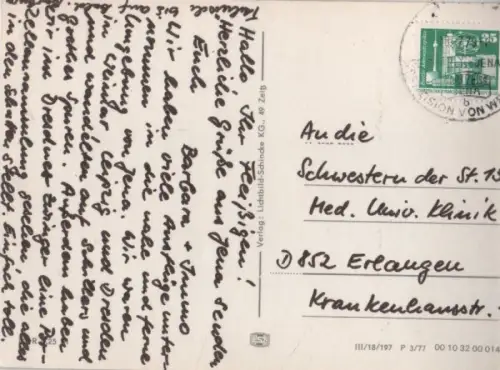 Hallo Ihr Fleißigen!
Herzliche Grüße aus Jena sendet
Euch
Barbara + Immo
Wir haben viele Ausflüge unter-
nommen in die nahe und ferne
Umgebung von Jena. Wir waren
in Weimar, Leipzig und Dresden
und wandelten auf Schillers und
Goethes Spuren. Außerdem haben
wir im Dresdner Zwinger eine
Zellensammlung gesehen die alles
in den Schatten stellt. Einfach toll.
Verlag: Lichtbild-Schincke KG., 49 Zeitz
25
JENA
An die
Schwestern der St. 13
Med. Univ. Klinik
D 852 Erlangen
Krankenhausstr.
III/18/197 P 3/77 00 10 32 00 014